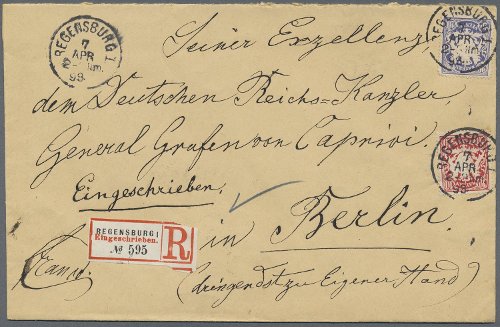 REGENSBURG I
7
APR
93.
Seiner Exzellenz,
REGENSBURG I
APR
dem Deutschen Reichs-Kanzler,
General Grafen von Caprivi.
REGENSBURG I
7
APR
Eingeschrieben.
in Berlin.
REGENSBURG I
Eingeschrieben.
№ 595
R
(dringendst zu Eigener Hand)